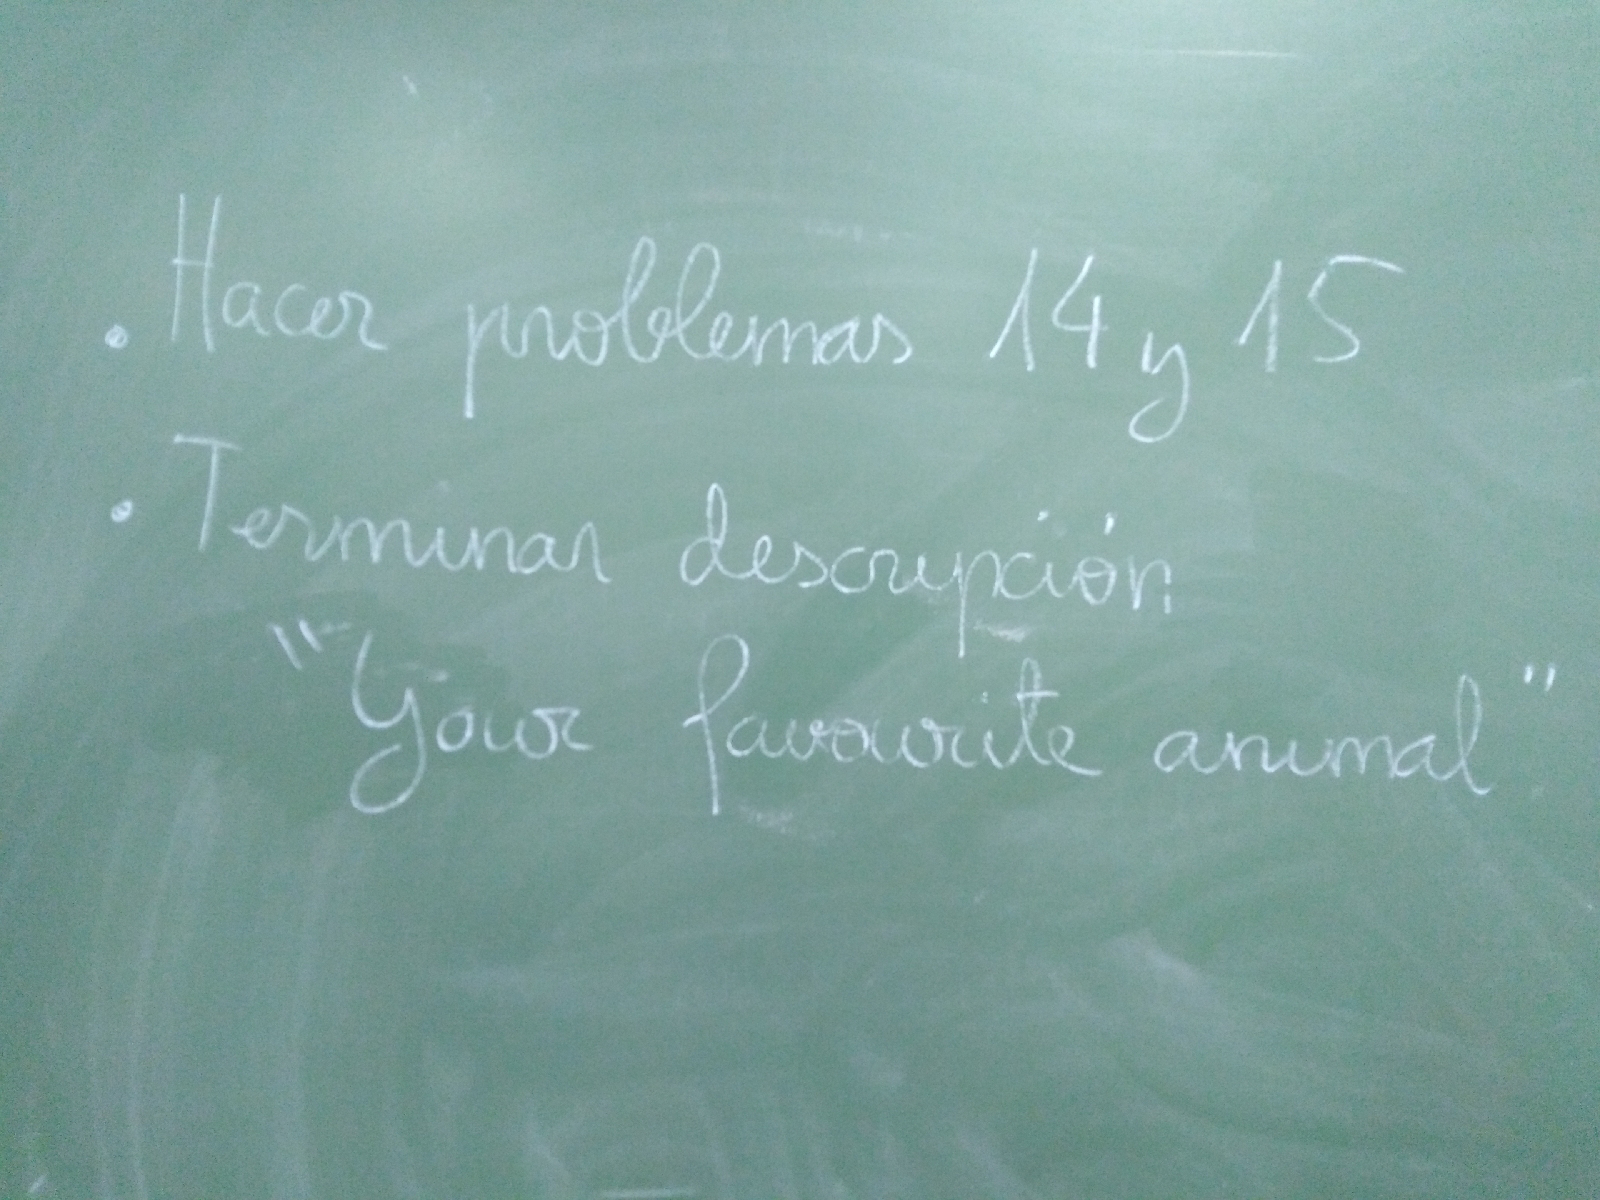 . Hacer problemas 14 y 15
. Terminar descripción
"Your favourite animal"